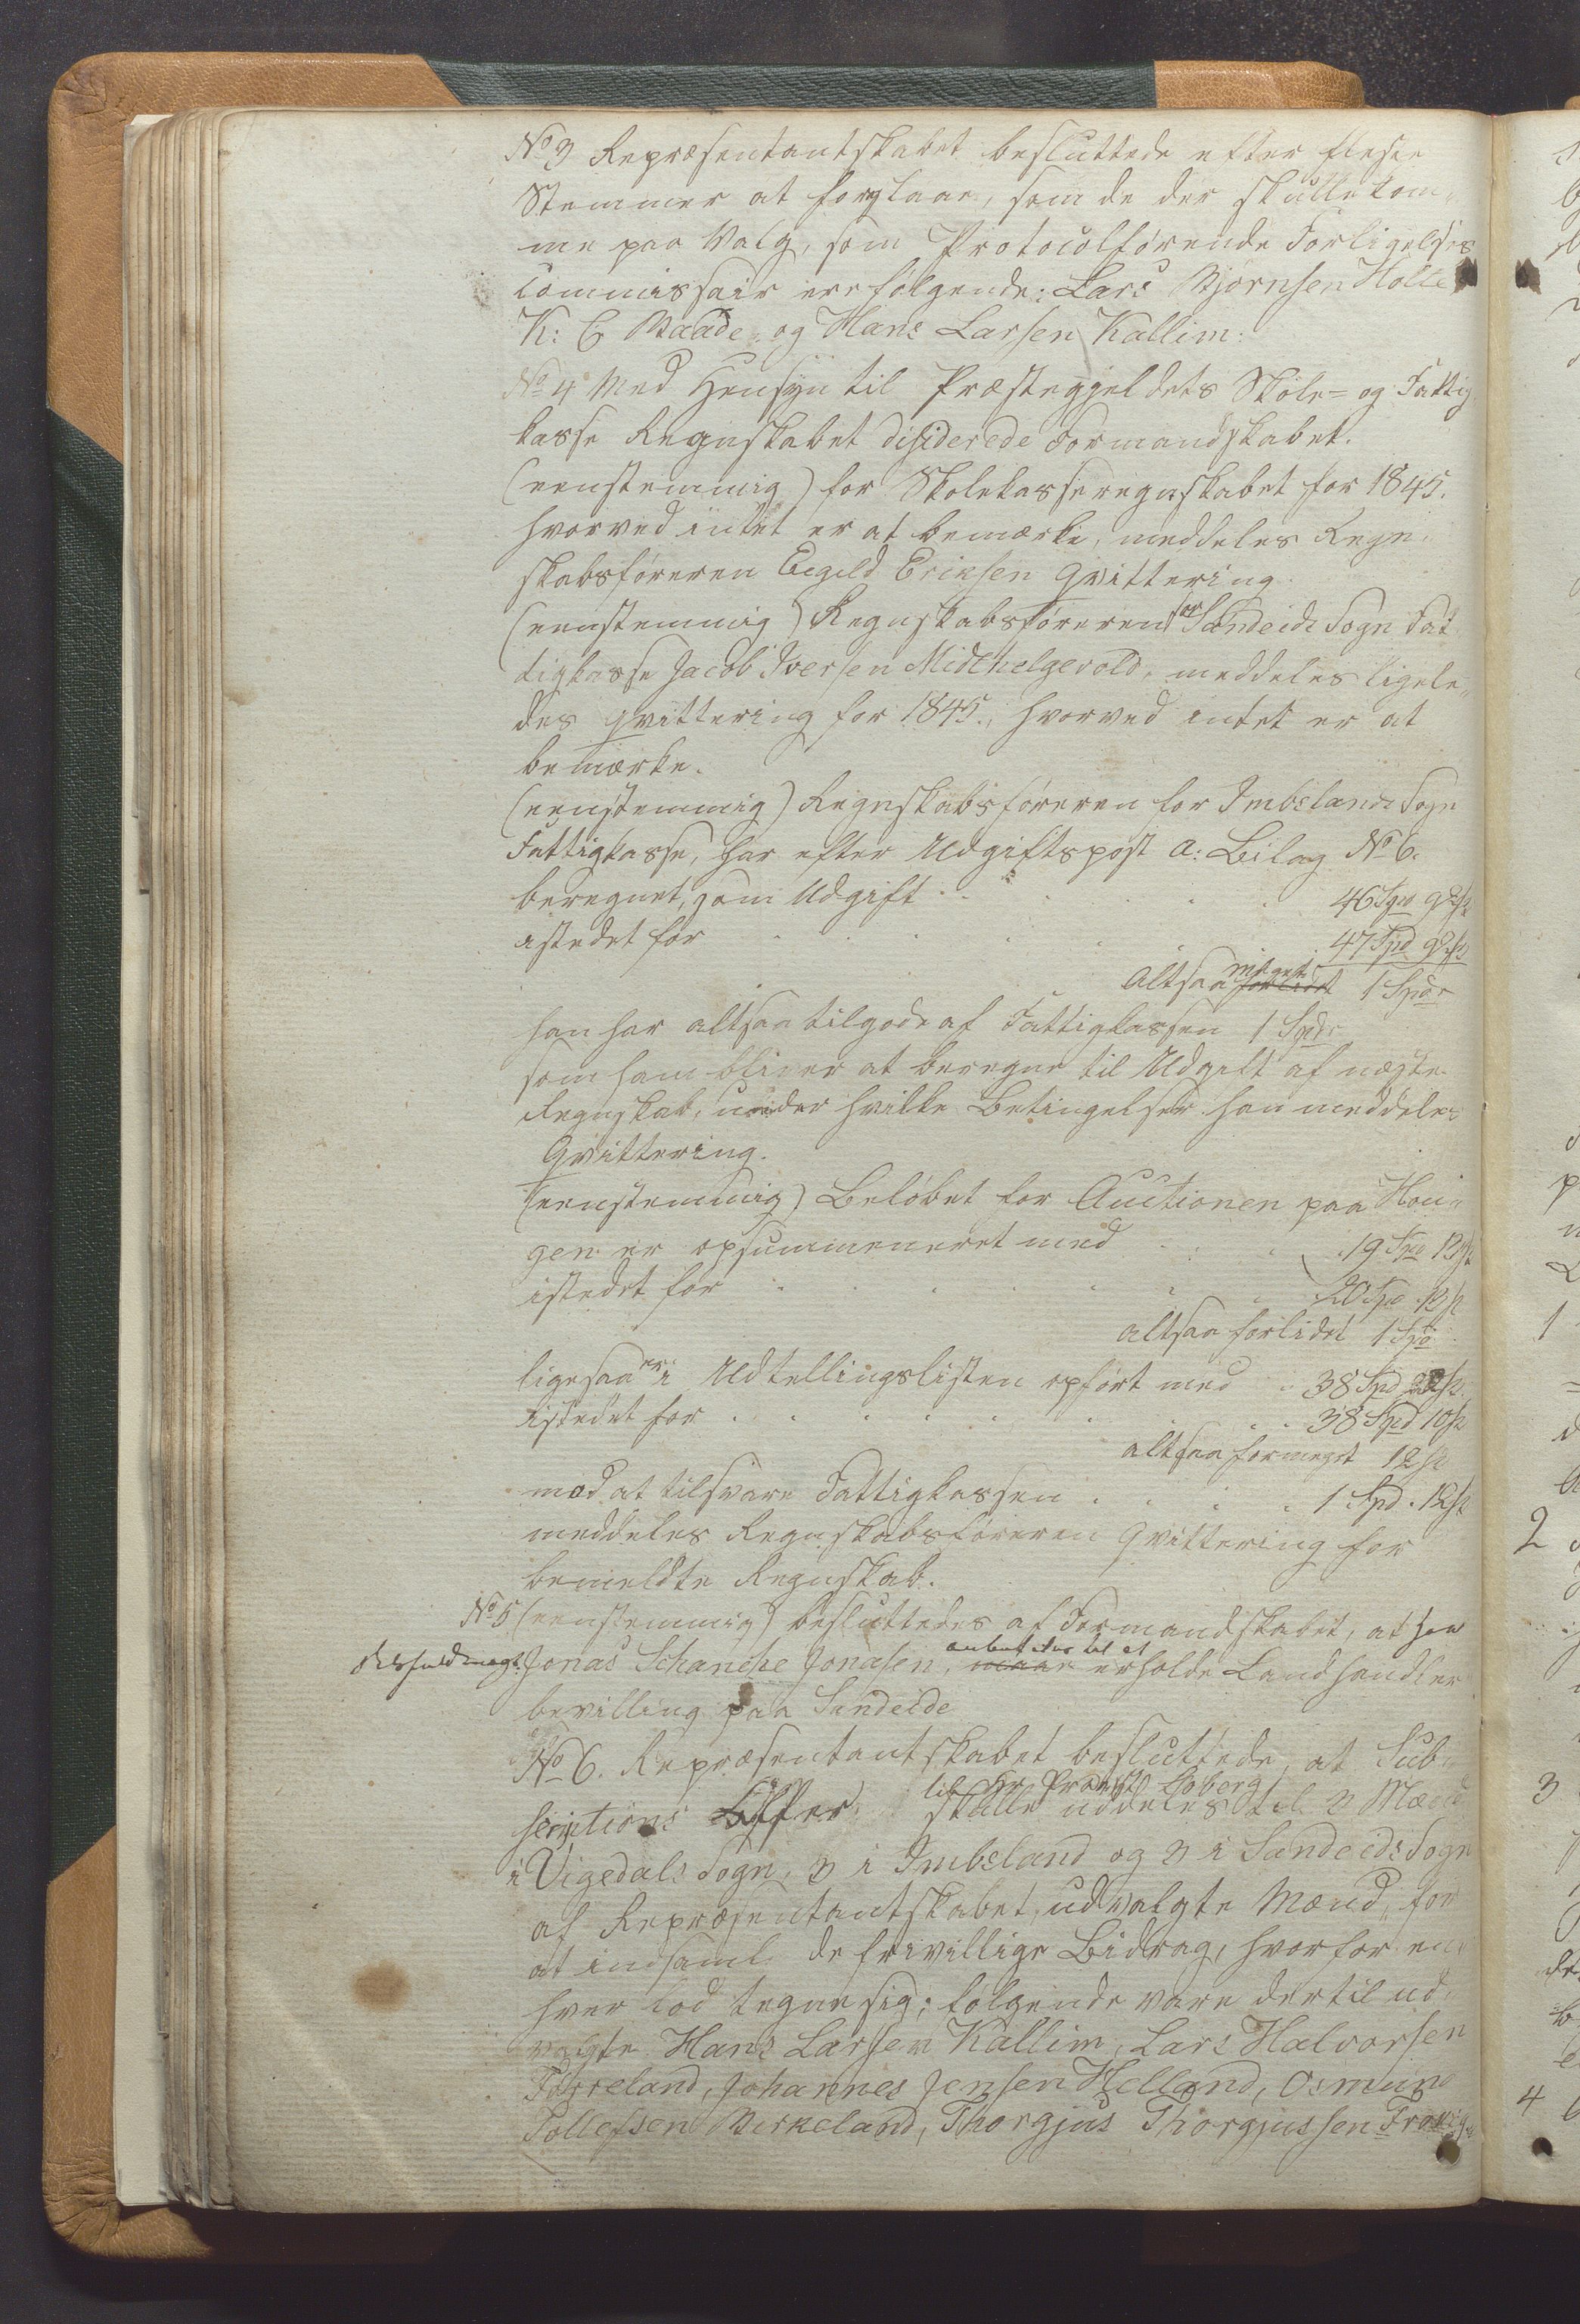 No 3 Repræsentantskabet besluttede efter fleste
Stemmer at foreslaae, som de der skulle kom-
me paa Valg, som Protocolförende Forligelses
Commissair ere følgende: Lars Bjørnsen Holle
K: C Baade og Hans Larsen Kallim:
No 4 Med Hensyn til Præstegjeldets Skole- og Fattig
kasse Regnskabet disiderede Formandskabet.
(eenstemmig) for Skolekasseregnskabet for 1845.
hvorved intet er at bemærke, meddeles Regn-
skabsføreren Eegild Eriksen Qvittering
(eenstemmig) Regnskabsføreren for Sandeids Sogn Fat
tigkasse Jacob Iversen Midthelgevold, meddeles ligele-
des qvittering for 1845., hvorved intet er at
bemærke.
(eenstemmig) Regnskabsføreren for Imbslands Sogn
Fattigkasse, har efter Udgiftspost a: Bilag No 6.
beregnet, som Udgift 46 Spd 92 s
istedet for 47 Spd 92 s
Altsaa meget 1 Spdr
han har altsaa tilgode af Fattigkassen 1 Spdr
som ham bliver at beregne til Udgivt af næste
Regnskab, under hvilke Betingelser han meddeles
Qvittering.
(eenstemmig) Beløbet for Auctionen paa Hou-
gen er opsummeneret med 19 Spd 12 s
istedet for 20 Spd 12 s
altsaa forlidet 1 Spd
ligesaa er i Udtellingslisten opført med 38 Spd 22 s
istedet for 38 Spd 10 s
altsaa formeget 12 s
mod at tilsvare Fattigkassen 1 Spd. 12 s
meddeles Regnskabsføreren Qvittering for
bemeldte Regnskab.
No 5 (eenstemmig) besluttedes af Formandskabet, at
Jonas Schanche Jonasen, anbefales til at erholde Landhandler
bevilling paa Sandeide
No 6. Repræsentantskabet besluttede, at Sub-
til Hr. Provst Loberg
scriptions skulle uddeles til 3 Mænd
i Vigedals Sogn, 3 i Imbsland og 3 i Sandeids Sogn
af Repræsentantskabet udvalgte Mænd, for
at indsamle de frivillige Bidrag, hvorfor en
hver lod tegne sig; følgende vare dertil ud-
valgte Hans Larsen Kallim, Lars Halvorsen
Førreland, Johannes Jensen Helland, Osmund
Tollefsen Birkeland, Thorgjus Thorgjussen